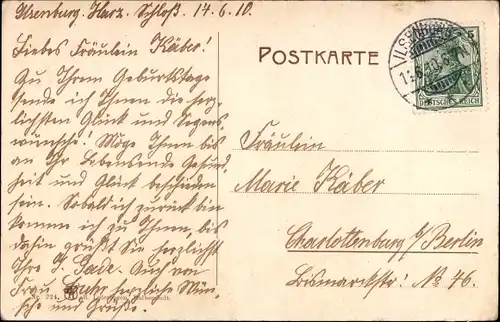 Ilsenburg. Harz. Schloß. 14.6.10.
Liebes Fräulein Käber!
Zu Ihrem Geburtstage
sende ich Ihnen die herz-
lichsten Glück und Segens
wünsche! Möge Ihnen bis
an Ihr Lebensende Gesund
heit und Glück beschieden
sein. Sobald ich zurück bin
komme ich zu Ihnen, bis
dahin grüßt Sie herzlichst
Ihre J. Gade. Auch von
Frau herzliche Wün-
sche und Grüße.
Nr. 724.
POSTKARTE
ILSENBURG
5
DEUTSCHES REICH
Fräulein
Marie Käber
Charlottenburg b/Berlin
Bismarckstr: No 46.